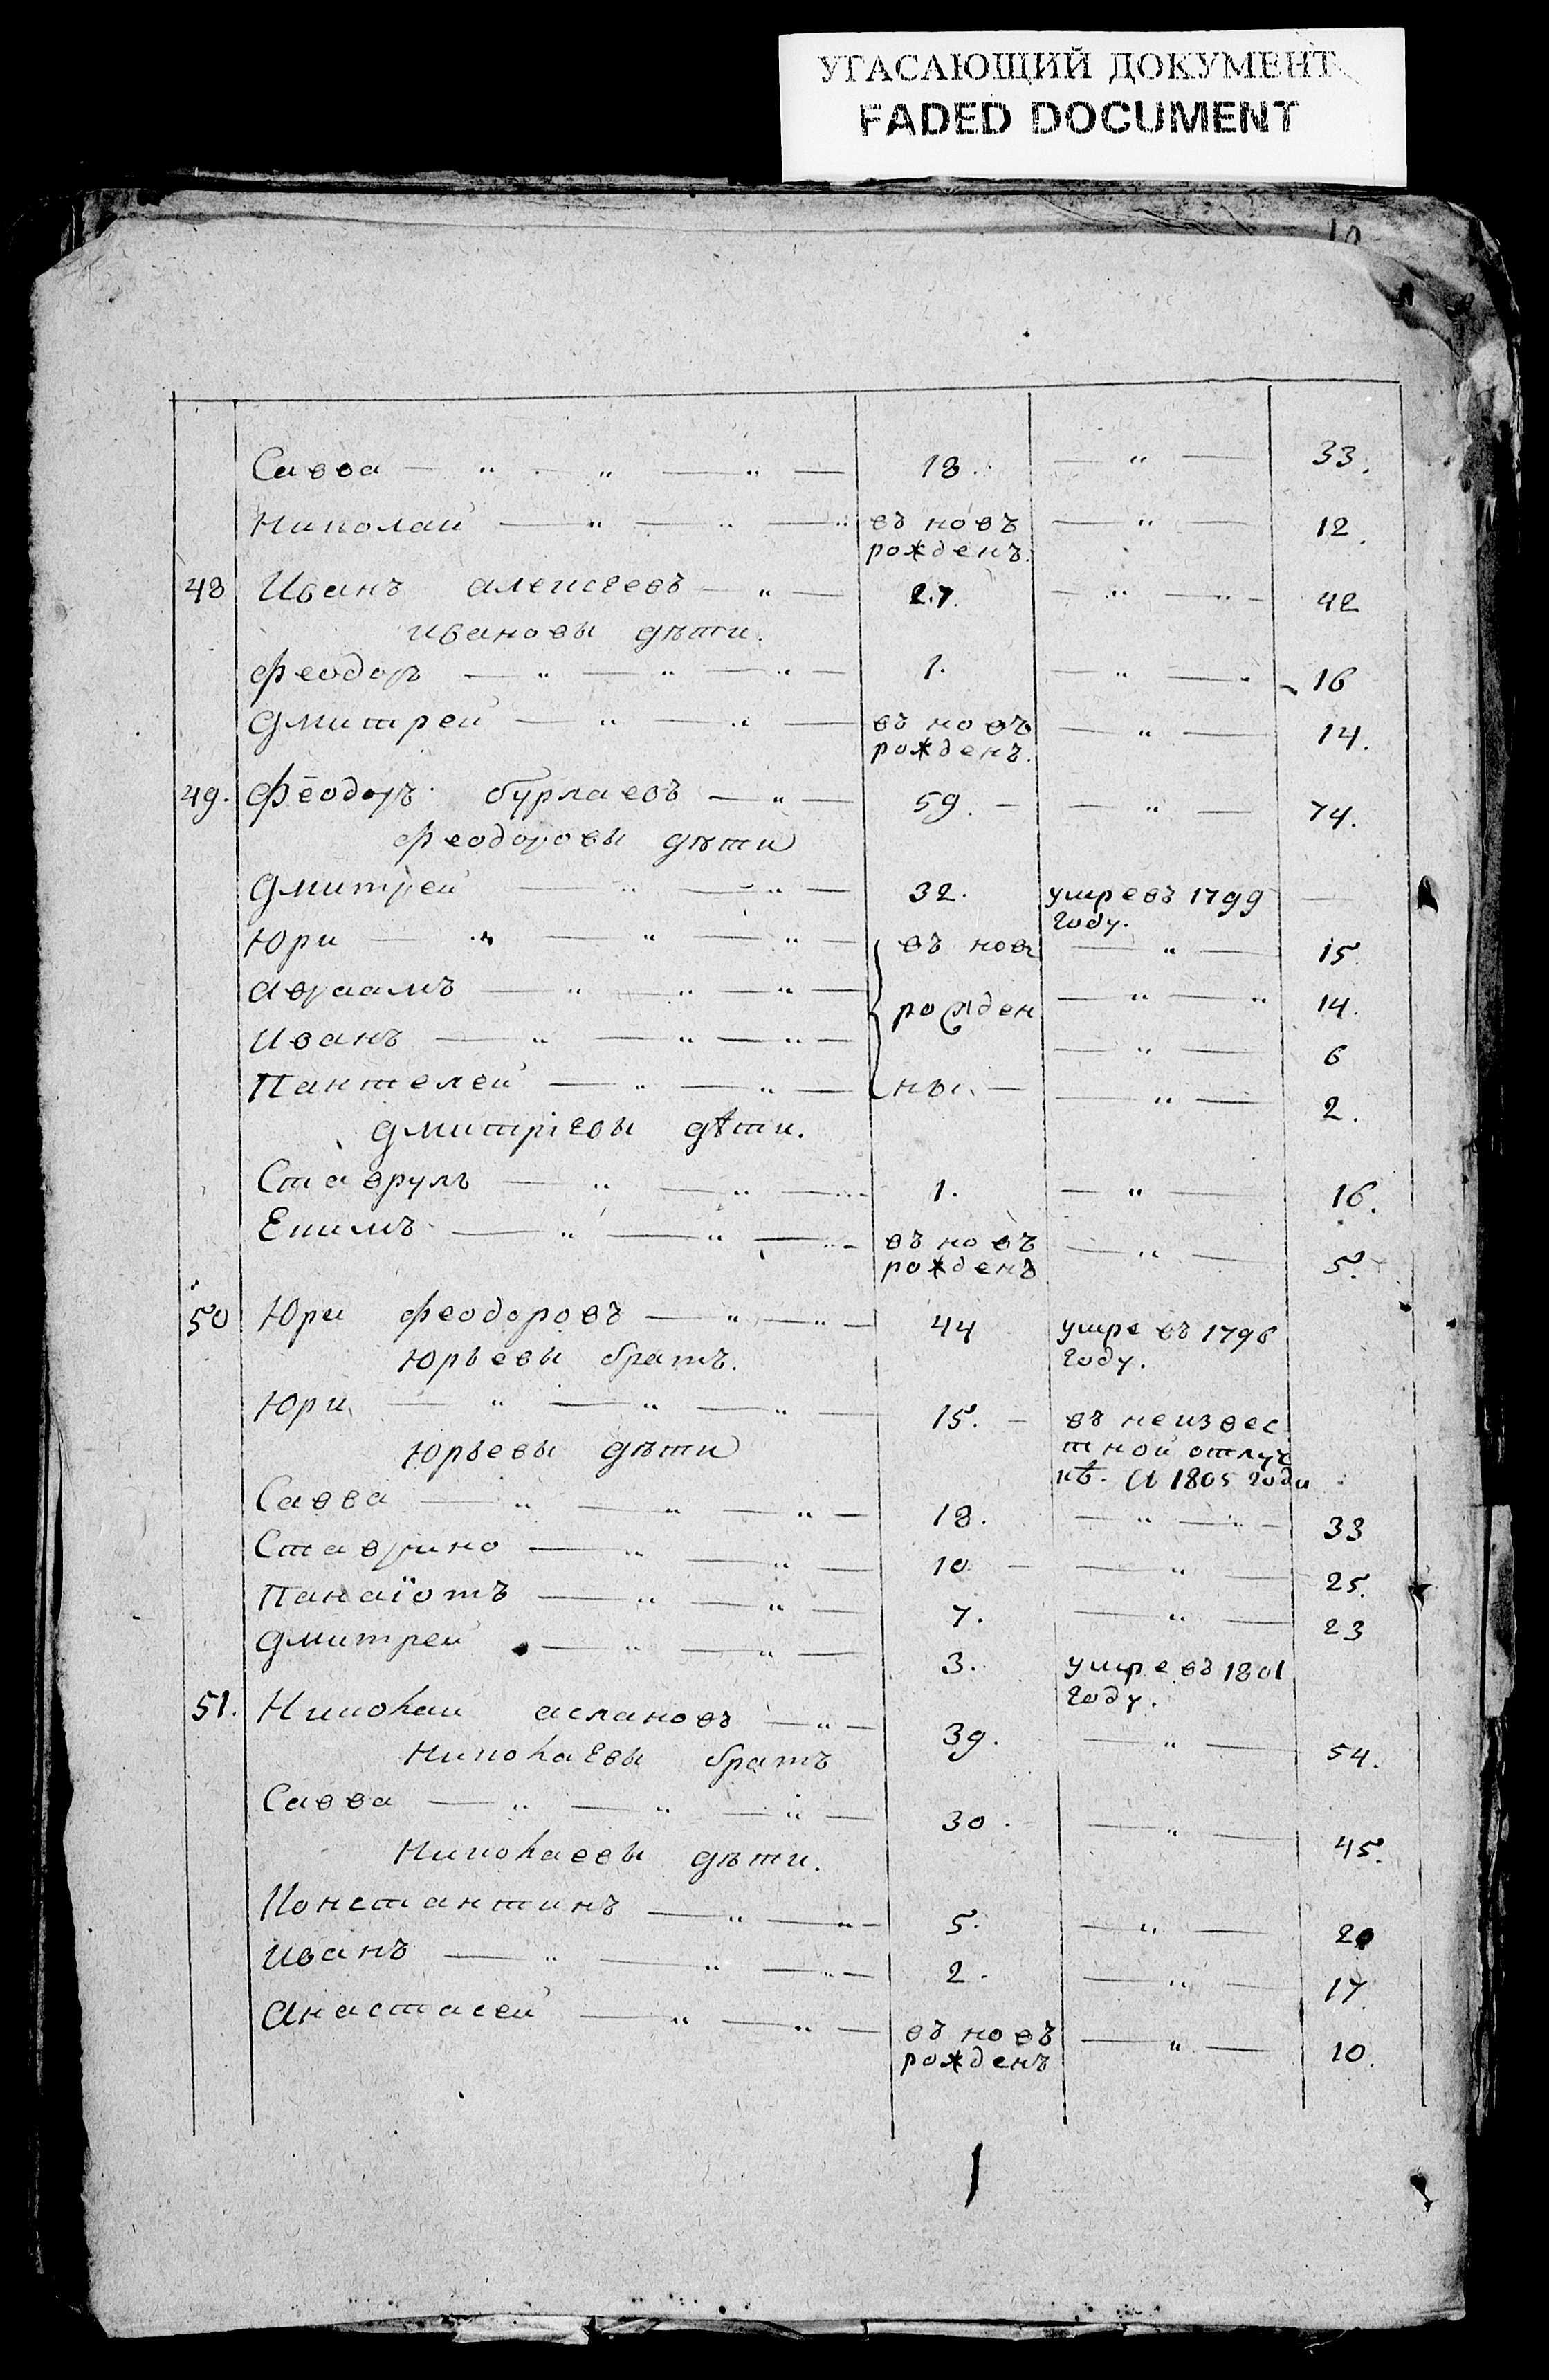 УГАСАЮЩИЙ ДОКУМЕНТ
FADED DOCUMENT
Савва — „ — „ — „ — 18. — „ — 33.
Николай — „ — „ — „ въ новъ — „ — 12.
рожденъ.
48 Иванъ алексеевъ — „ — 27. — „ — „ — 42
ивановы дѣти.
Феодоръ — „ — „ — „ — 1. — „ — 16
Дмитрей — „ — „ — въ новъ — „ — 14.
рожденъ.
49. Феодоръ бурлаевъ — „ — 59. — — „ — 74.
Феодоровы дѣти
Дмитрей — „ — „ — 32. умре въ 1799 —
году.
Юри — „ — „ — „ — въ новъ — „ — 15
авраамъ — „ — „ — „ — рожден — „ — „ 14.
Иванъ — „ — „ — „ — — „ — 6
Пантелей — „ — „ — ны. — — „ — 2.
дмитріевы дѣти.
Ставрулъ — „ — „ — 1. — „ — 16.
Екимъ — „ — „ — „ — въ новъ — „ — 5.
рожденъ
50 Юри феодоровъ — „ — „ — 44 умре въ 1796
году.
Юрьевы братъ.
Юри — „ — „ — „ — 15. — въ неизвес
тной отлуч
кѣ. Съ 1805 года
Юрьевы дѣти
Савва — „ — „ — „ — 18. — „ — „ — 33
Ставрино — „ — „ — 10 — — „ — 25.
Панаїотъ — „ — „ — 7. — „ — 23
Дмитрей — „ — „ — 3. умре въ 1801
году.
51. Николай аслановъ — „ — 39. — „ — 54.
Николаевы братъ
Савва — „ — „ — „ — 30. — „ — 45.
Николаевы дѣти.
Константинъ — „ — „ — 5. — „ — 20
Иванъ — „ — „ — „ — 2. — „ — 17.
Анастасей — „ — „ — въ новъ — „ — 10.
рожденъ